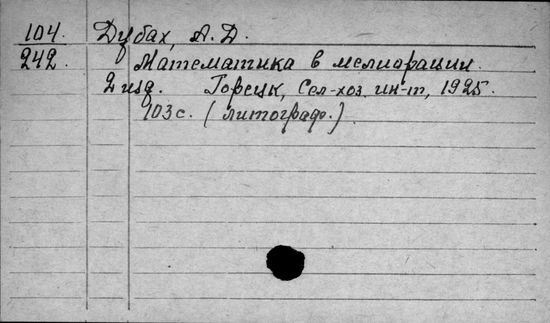 104. Дубах, А. Д.
242. Математика в мелиорации.
2 изд. Горецк, Сел-хоз. ин-т, 1925.
103 с. (литограф.)